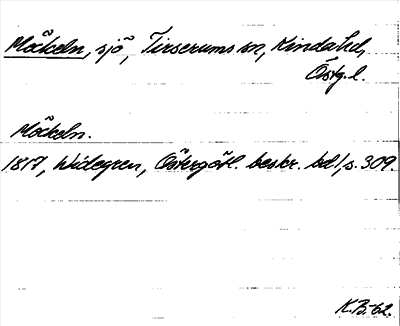 Möckeln, sjö, Tirserums sn, Kinda hd,
Östg.l.
Möckeln.
1817, Widegren, Östergötl. beskr. bd 1, s. 309.
K.B.-62.